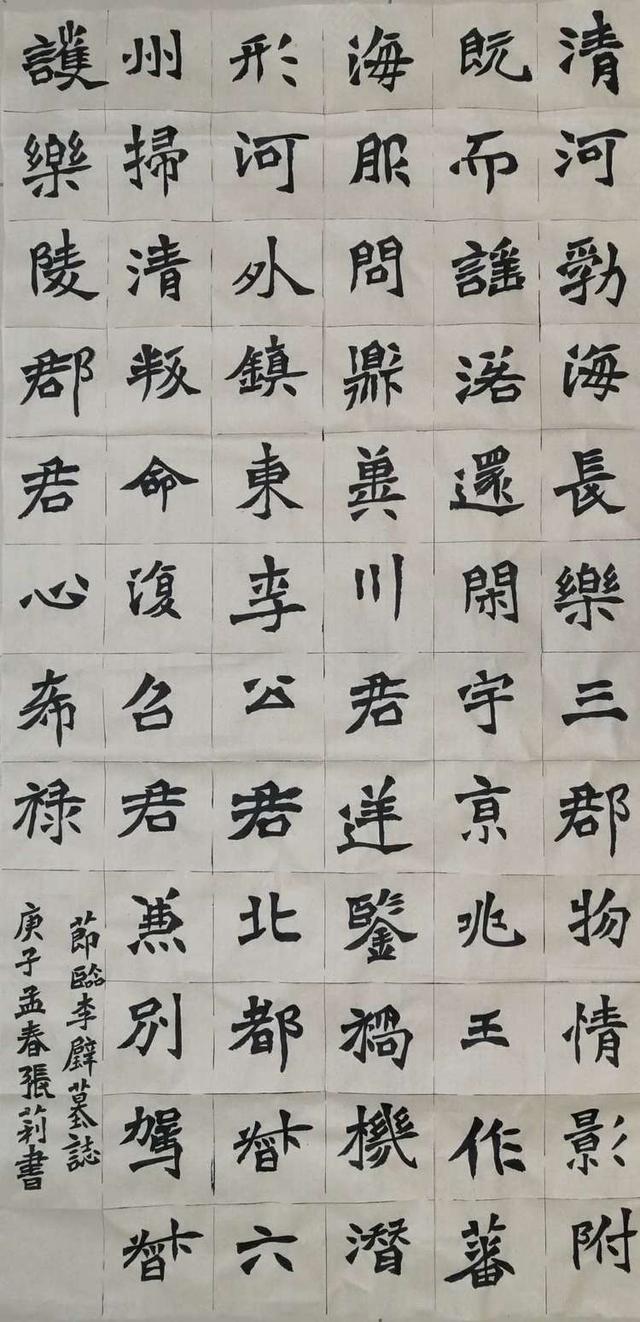 清河勃海長樂三郡物情影附
既而謡落還閑宇京兆王作蕃
海服問鼎冀川君逆鑒禍機潛
形河外鎮東李公君北都督六
州掃清叛命復召君兼別駕督
護樂陵郡君心希祿
節臨李璧墓誌
庚子孟春張莉書